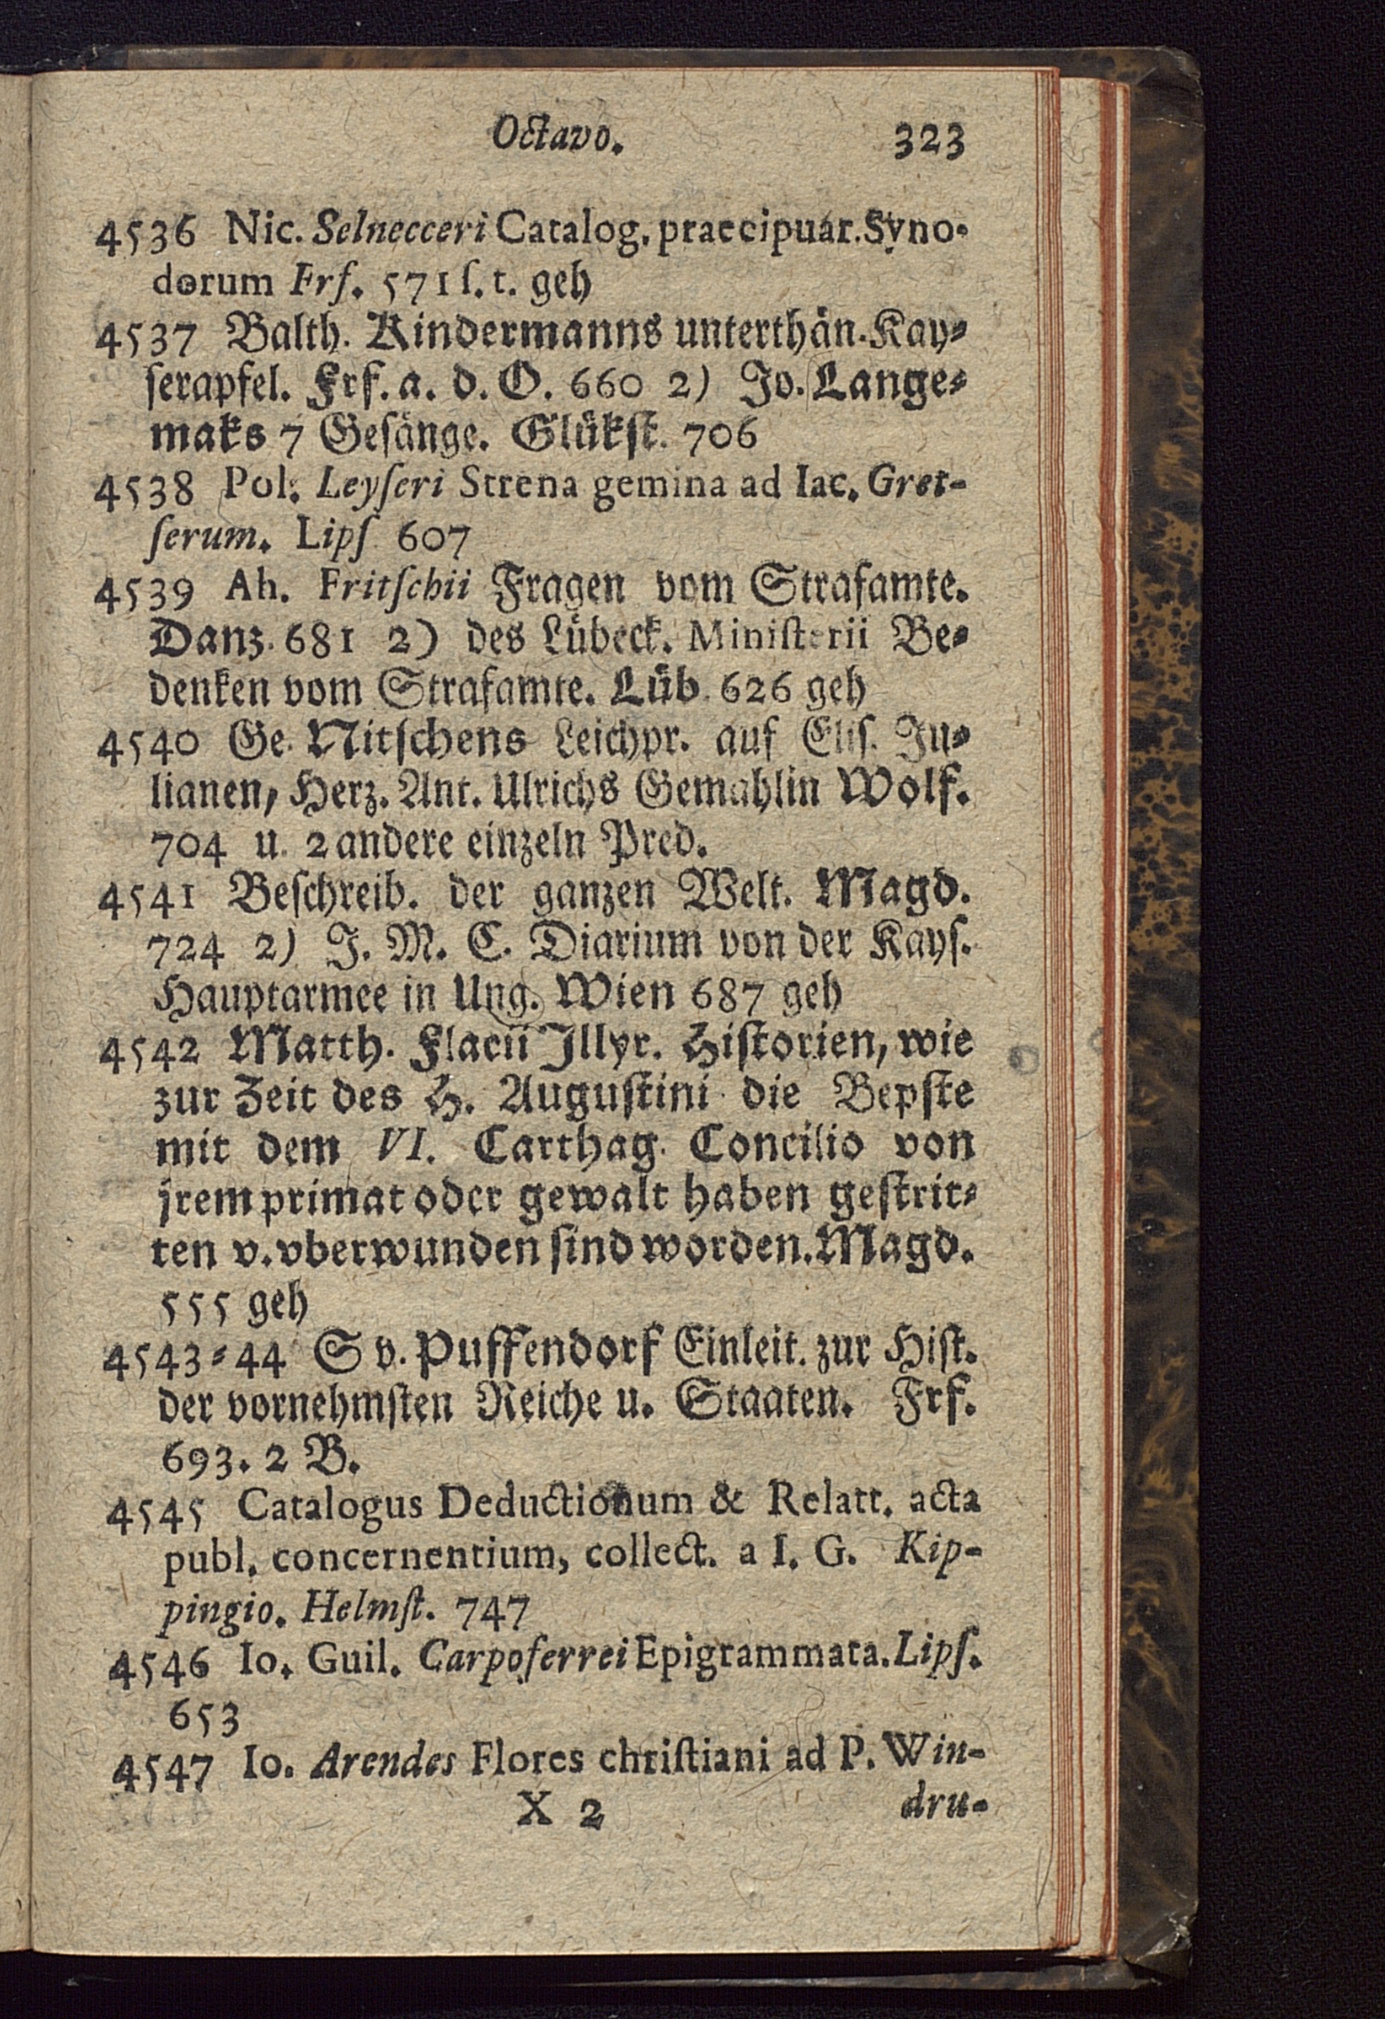 Octavo. 323
4536 Nic. Selnecceri Catalog. praecipuar. Syno-
dorum Frf. 571 ſ. t. geh
4537 Balth. Kindermanns unterthän. Kay-
ſerapfel. Frf. a. d. O. 660 2) Jo. Lange-
maks 7 Geſänge. Glükſt. 706
4538 Pol. Leyſeri Strena gemina ad Iac. Gret-
ſerum. Lipſ 607
4539 Ah. Fritſchii Fragen vom Strafamte.
Danz. 681 2) des Lübeck. Miniſterii Be-
denken vom Strafamte. Lüb. 626 geh
4540 Ge. Nitſchens Leichpr. auf Eliſ. Ju-
lianen, Herz. Ant. Ulrichs Gemahlin Wolf.
704 u. 2 andere einzeln Pred.
4541 Beſchreib. der ganzen Welt. Magd.
724 2) J. M. C. Diarium von der Kayſ.
Hauptarmee in Ung. Wien 687 geh
4542 Matth. Flacii Jllyr. Hiſtorien, wie
zur Zeit des H. Auguſtini die Bepſte
mit dem VI. Carthag. Concilio von
jrem primat oder gewalt haben geſtrit-
ten v. vberwunden ſind worden. Magd.
555 geh
4543-44 S v. Puffendorf Einleit. zur Hiſt.
der vornehmſten Reiche u. Staaten. Frf.
693. 2 B.
4545 Catalogus Deductionum & Relatt. acta
publ. concernentium, collect. a I. G. Kip-
pingio. Helmſt. 747
4546 Io. Guil. Carpoferrei Epigrammata. Lipſ.
653
4547 Io. Arendes Flores chriſtiani ad P. Win-
X 2 dru-